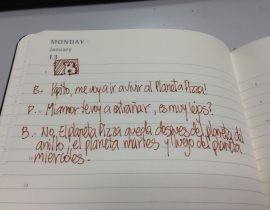 MONDAY
January
13
B
B.- Papito, me voy a ir a vivir al Planeta Pizza!
P.- Mi amor te voy a extrañar, es muy lejos?
B.- No, El planeta Pizza queda despues del planeta del
anillo, el planeta martes y luego del planeta
miercoles.